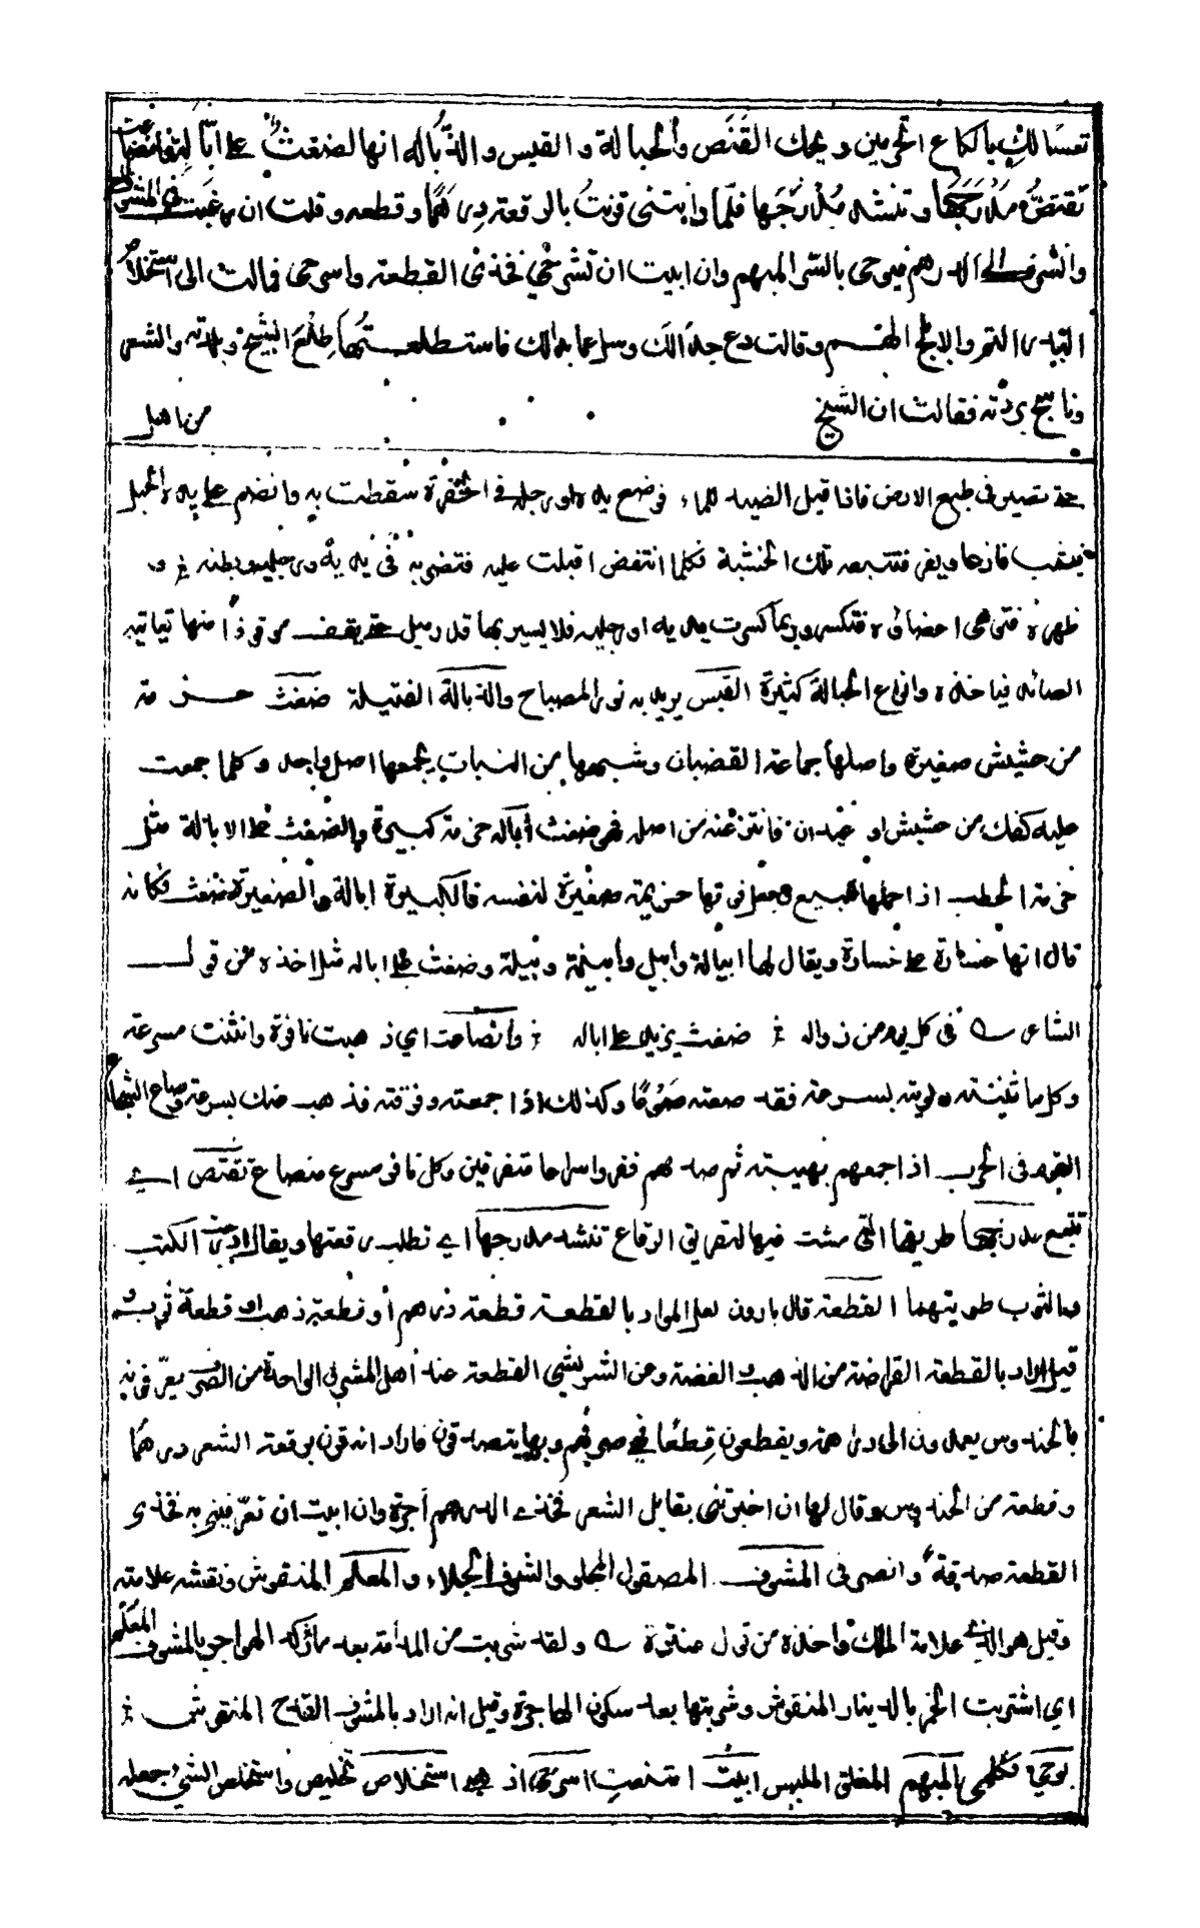 تعسًا لكِ يا لكاع اتحرمين ويحك القنص والحبالة والقبس والذبالة انها لضغث على ابّالة فانصاعت
تقتص مدرجها وتنشد مدرجها فلما دانتنى قرنت بالرقعة درهمًا وقطعة وقلت ان رغبت فى المشوف المعلم
واشرت الى الدرهم فبوحى بالسر المبهم وان ابيت ان تشرحي فخذى القطعة واسرحى فمالت الى استخلاص
البدر التم والابلج الهم وقالت دع جدالك وسل عما بدالك فاستطلعتها طلع الشيخ وبلدته والشعر
وناسج بردته فقالت ان الشيخ من اهل
حتى تصير فى طبع الارض فاذا قبل الصيد للماء فوضع يده او رجله فى الحفرة سقطت به وانضم على يده الحبل
فينصب فازحا ويفر فتتبعه تلك الخشبة فكلما انتفض اقبلت عليه فتضربه فى يديه ورجليه وبطنه و
ظهره فتوهى اعضاؤه فتكسر وربما كسرت يديه او رجليه فلا يسير بها قدر ميل حتى يقف موقوذا منها فياتيه
الصائد فياخذه وانواع الحبالة كثيرة القبس يريد به نور المصباح والذبالة الفتيلة ضغث حزمة
من حشيش صغيرة واصلها جماعة القضبان وشبهها من النبات يجمعها اصل واحد وكلما جمعت
عليه كفك من حشيش او عيدان فانتزعته من اصله فهو ضغث ابالة حزمة كبيرة والضغث على الابالة مثل
حزمة الحطب اذا حملها للبيع فجعل فوقها حزيمة صغيرة لنفسه فالكبيرة ابالة والصغيرة ضغث فكانه
قال انها خسارة على خسارة ويقال لها ابيالة وابيل وابيلة وبيلة وضغث على ابالة مثل اخذه من قول
الشاعر فى كل يوم من ذواله ضغث يزيد على اباله وانصاعت اي ذهبت نافرة وانثنت مسرعة
وكل ما ثنيته ولويته بسرعة فقد صعته صوعًا وكذلك اذا جمعته وفرقته فذهب عنك بسرعة وصاع الشجاع
القوم فى الحرب اذا جمعهم بهيبته ثم صدهم ففروا سراعا متفرقين وكل نافر مسرع منصاع تقتص اي
تتبع مدرجها طريقها التى مشت فيها لتفريق الرقاع تنشد مدرجها اي تطلب رقعتها ويقال ادرجت الكتب
والثوب طويتهما القطعة قال بارون لعل المراد بالقطعة قطعة درهم او قطعة ذهب او قطعة ثوب و
قيل اراد بالقطعة القراضة من الذهب والفضة وعن الشريشي القطعة عند اهل المشرق الواحدة من الصرف يعرفونه
بالحندوس يعمدون الى دراهمه ويقطعون قطعًا فى صرفهم وبها يتصدقون فاراد انه قرن برقعة الشعر درهمًا
وقطعة من الحندوس وقال لها ان اخبرتنى بقايل الشعر فخذي الدرهم اجرة وان ابيت ان تعرفيني به فخذى
القطعة صدقة وانصرفى المشوف المصقول المجلو والشوف الجلاء والمعلم المنقوش ونقشه علامته
وقيل هو الذي علامة الملك واخذه من قول عنترة ولقد شربت من المدامة بعد ما ركد الهواجر بالمشوف المعلم
اي اشتريت الخمر بالدينار المنقوش وشربتها بعد سكون الهاجرة وقيل انه اراد بالمشوف القدح المنقوش
بوحى تكلمي المبهم المغلق الملبس ابيت امتنعت اسرحى اذهبى استخلاص تخليص واستخلص الشيء جعله